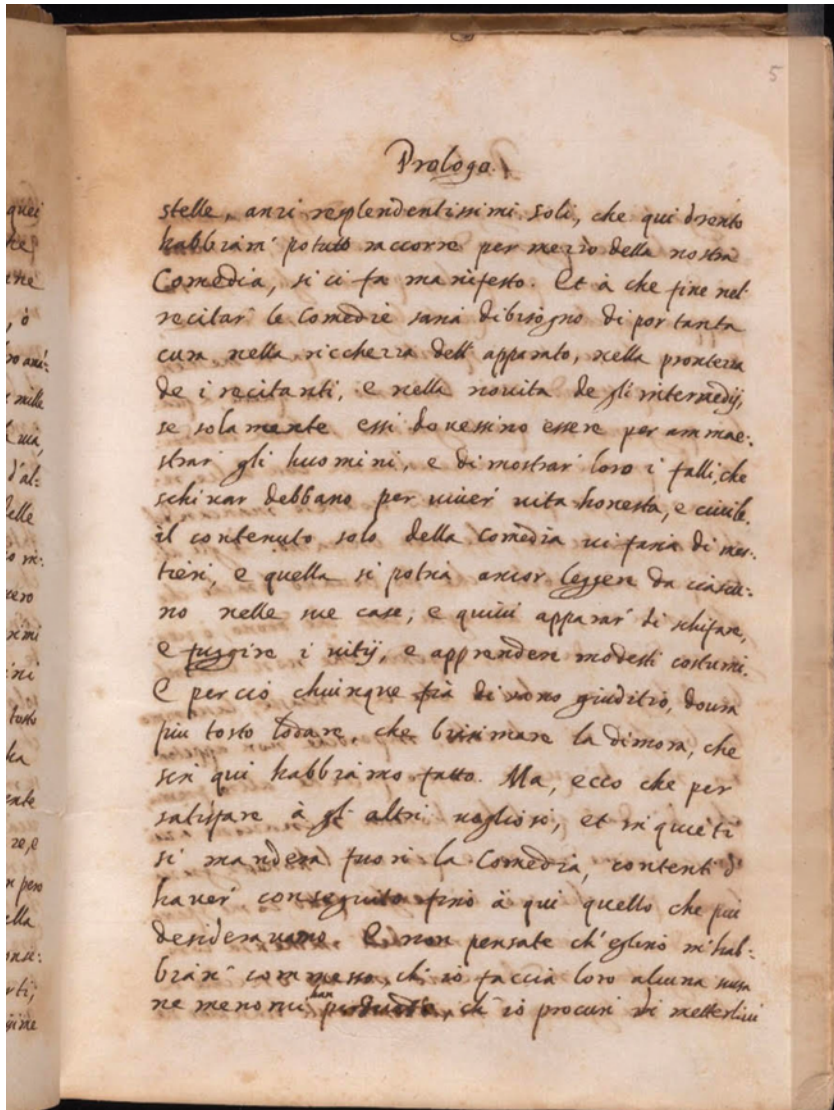 5
Prologo.
stelle, anzi resplendentissimi soli, che qui drento
habbiam' potuto raccorre per mezzo della nostra
Comedia, si ci fa manifesto. Et à che fine nel
recitar le Comedie saria dibisogno di por tanta
cura nella ricchezza dell' apparato, nella prontezza
de i recitanti, e nella novita de gli intermedij,
se solamente essi dovessino essere per ammae:
strar' gli huomini, e dimostrar' loro i falli, che
schivar debbano per viver' vita honesta, e civile.
il contenuto solo della comedia vi faria di mes:
tieri, e quella si potria ancor leggere da ciascu:
no nelle sue case, e quivi apparar' di schifare,
e fuggire i vitij, e apprendere modesti costumi.
E perciò chiunque fia di sano giuditio, dovra
piu tosto lodare, che biasimare la dimora, che
sin' qui habbiamo fatto. Ma, ecco che per
satisfare à gl' altri vogliosi, et inquieti
si manderà fuori la Comedia, contenti d'
haver' conseguito fino à qui quello che piu
desideravamo. E non pensate ch' eglino m' hab:
bian' commesso, ch' io faccia loro alcuna scusa
ne meno mi han, ch' io procuri di mettervi
quei
che
ò
mille
via,
d'al:
delle
vero
ini
tutto
re, e
pero